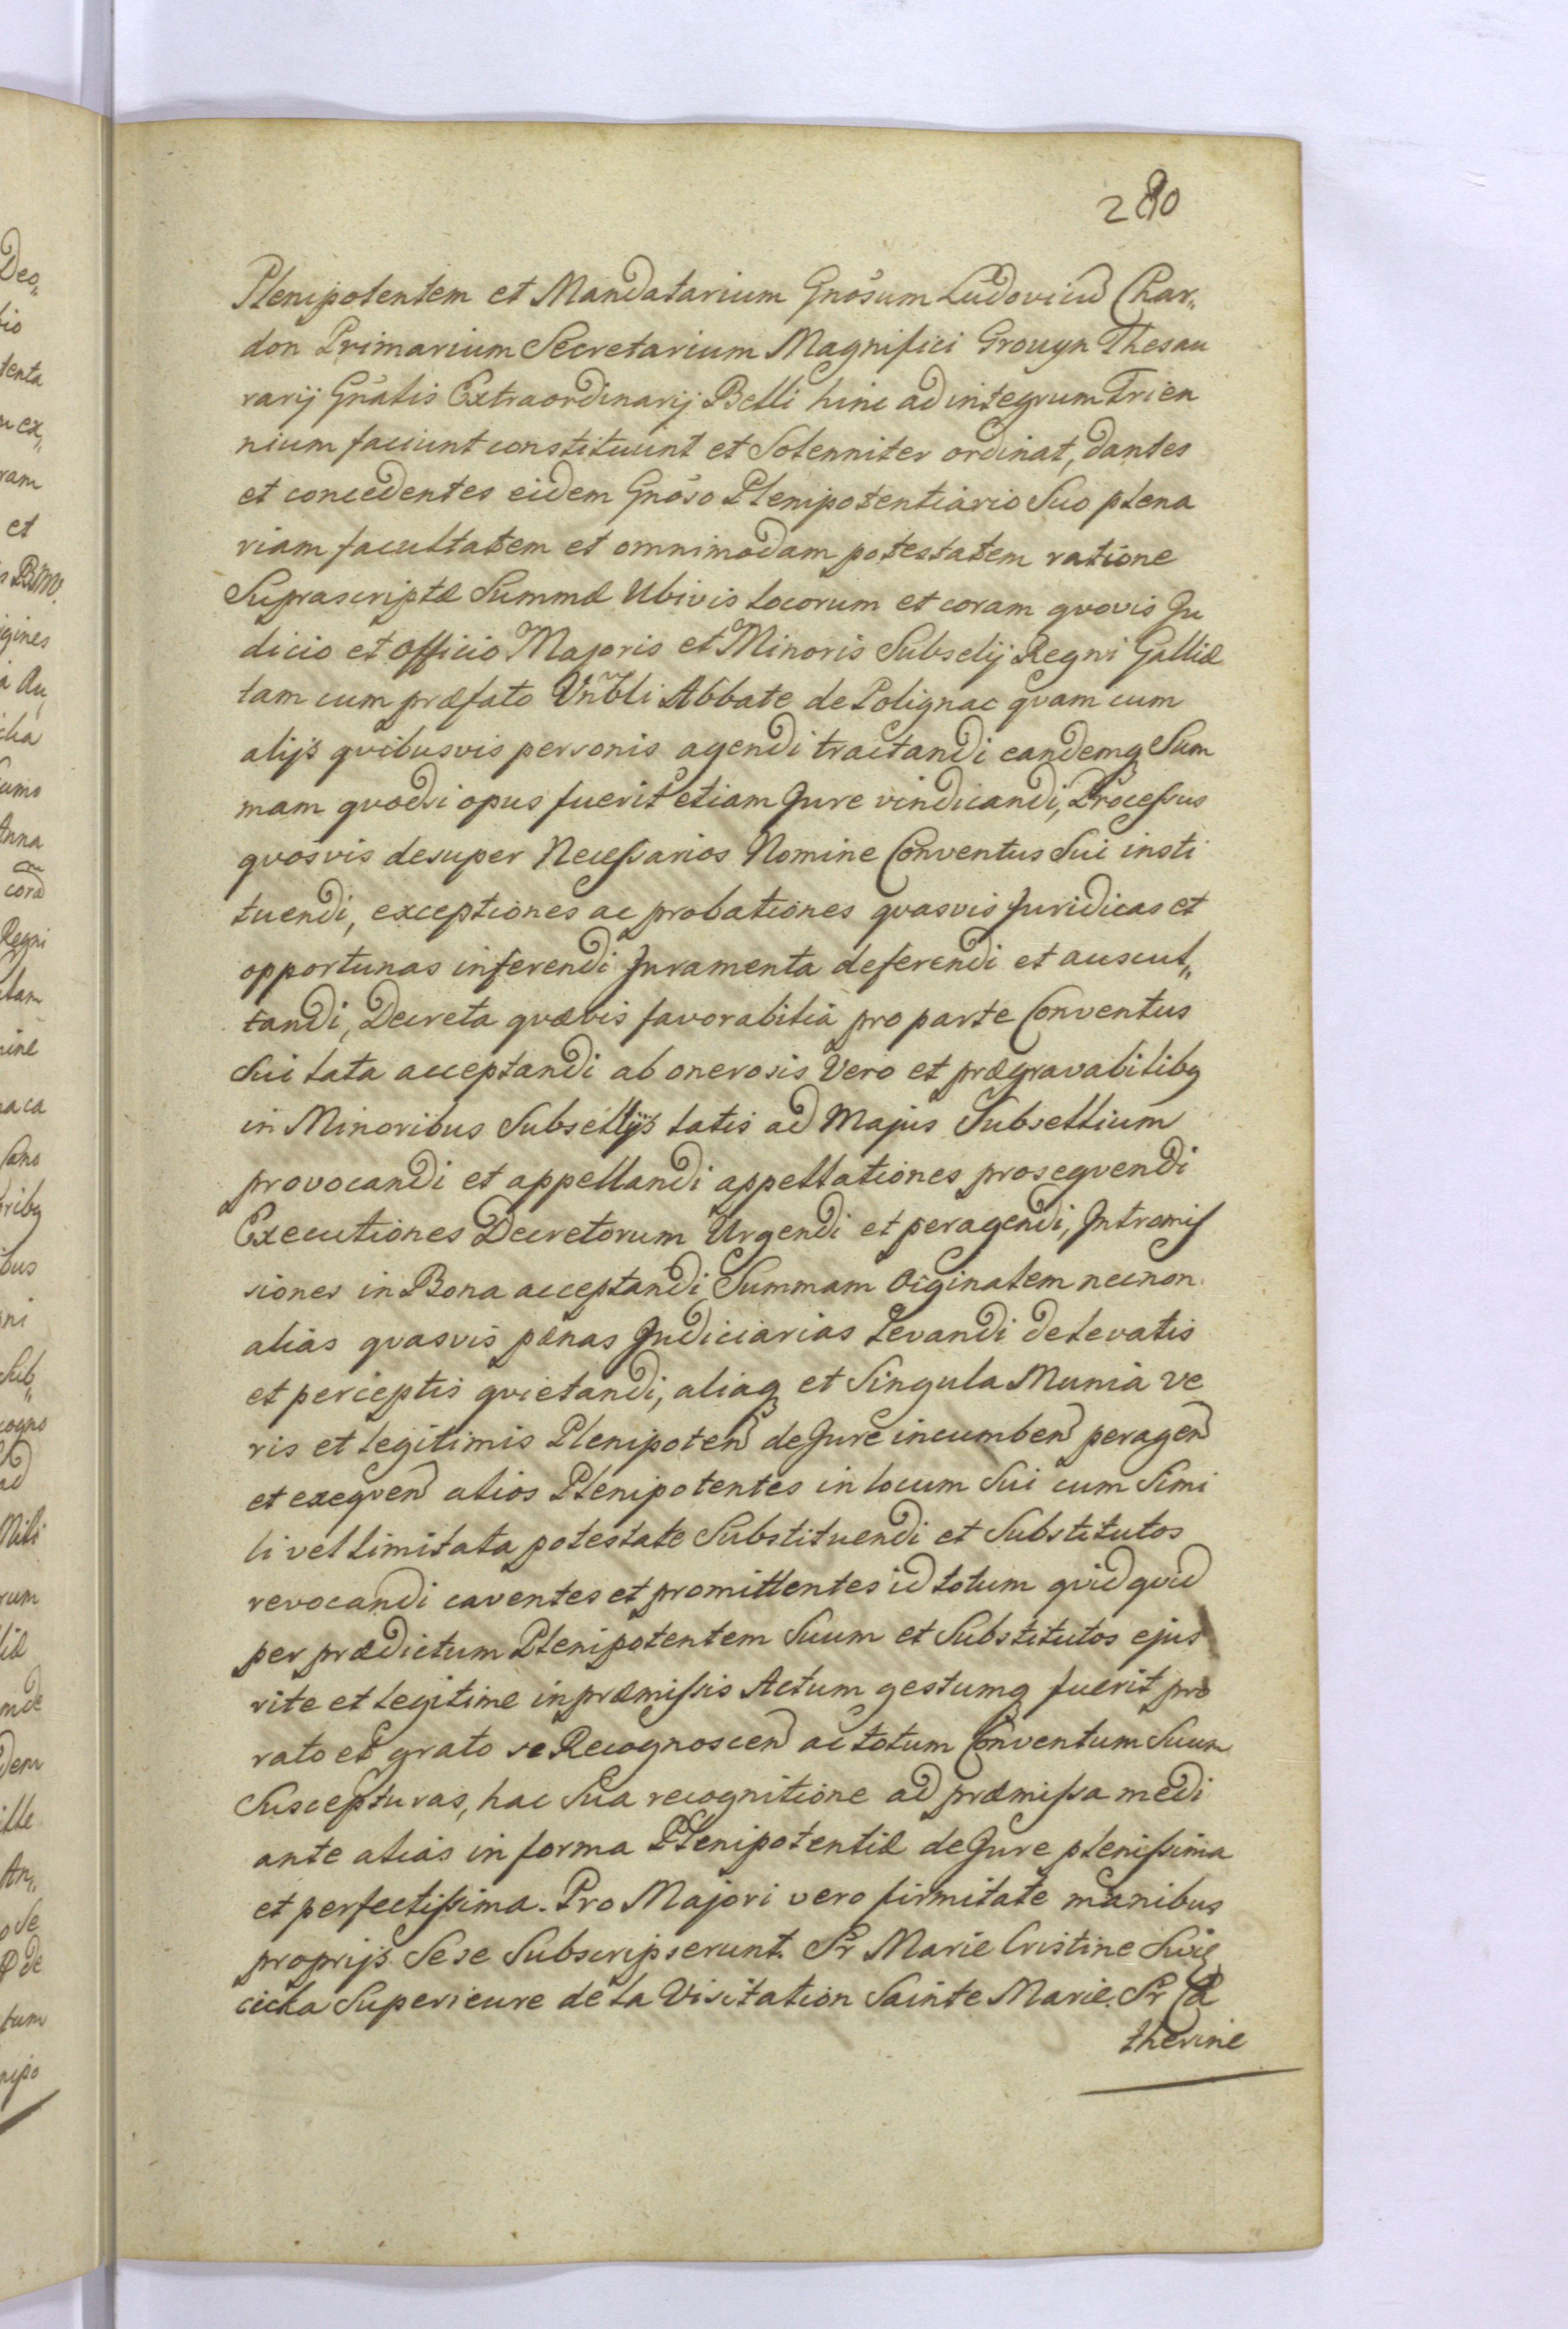 280
Plenipotentem et Mandatarium Gnõsum Ludovicū Char„
don Primarium Secretarium Magnifici Grouyn Thesau
rarij Gnãlis Extraordinarij Belli hinc ad integrum Trien
nium faciunt constituunt et Solenniter ordinat, dantes
et concedentes eidem Gnõso Plenipotentiario Suo plena
riam facultatem et omnimodam potestatem ratione
Suprascriptæ Summæ Ubivis locorum et coram qvovis Ju
dicio et officio Majoris et Minoris Subselij Regni Galliæ
tam cum præfato Vnbli Abbate de Polignac qvam cum
alijs qvibusvis personis agendi tractandi eandemq Sum
mam qvodsi opus fuerit etiam Jure vindicandi, Processus
qvosvis desuper Necessarios Nomine Conventus Sui insti
tuendi, exceptiones ac probationes qvasvis Juridicas et
opportunas inferendi Juramenta deferendi et auscul„
tandi, Decreta qvævis favorabilia pro parte Conventus
Sui lata acceptandi ab onerosis Vero et prægravabilibq
in Minoribus Subsellijs latis ad Majus Subsellium
provocandi et appellandi appellationes proseqvendi
Executiones Decretorum Urgendi et peragendi, Intromis
siones in Bona acceptandi Summam Oiginalem necnon
alias qvasvis pænas Judiciarias Levandi de levatis
et perceptis qvietandi, aliaq et Singula Munia ve
ris et legitimis Plenipoten de Jure incumben peragen
et exeqven alios Plenipotentes in locum Sui cum Simi
li vel limitata potestate Substituendi et Substitutos
revocandi caventes et promittentes id totum qvidqvid
per prædictum Plenipotentem Suum et Substitutos ejus
rite et legitime in præmissis Actum gestumq fuerit pro
rato et grato se Recognoscen ac totum Conventum Suum
Suscepturas, hac Sua recognitione ad præmissa medi
ante alias in forma Plenipotentiæ de Jure plenissima
et perfectissima. Pro Majori vero firmitate manibus
proprijs Sese Subscripserunt. Sr Marie Cristine Swię
cicka Superieure de la Visitation Sainte Marie. Sr Ca
therine